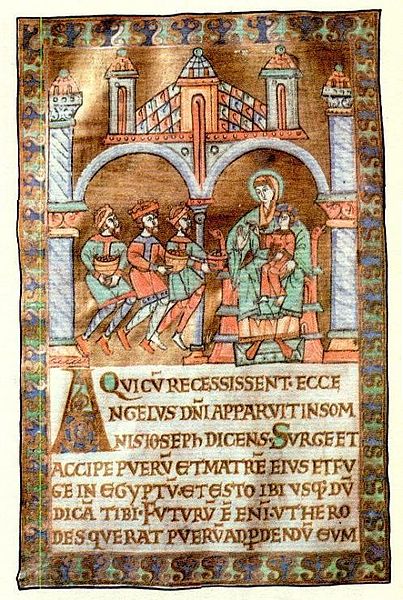 QVICŪ RECESSISSENT· ECCE
ANGELVS DN̄I APPARVIT IN SOM
NIS IOSEPH DICENS· SVRGE ET
ACCIPE PVERV̄ ET MATRĒ EIVS ET FV
GE IN EGYPTV̄· ET ESTO IBI VSQ· DV̄
DICĀ TIBI· FVTURV̄ Ē ENI· VT HERO
DES QVERAT PVERV̄ AD PDENDV̄ EVM